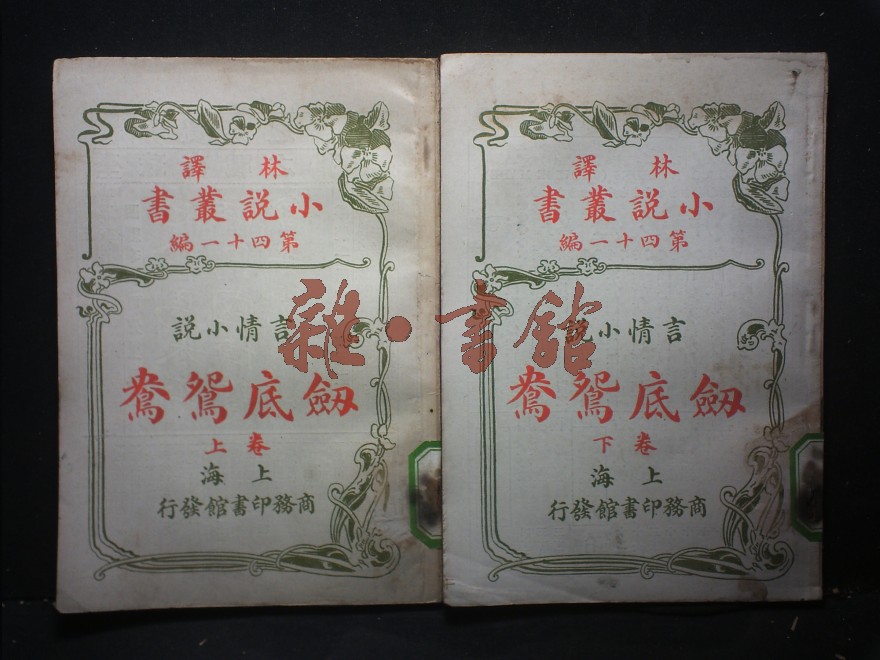 林譯
小說叢書
第四十一編
言情小說
劔底鴛鴦
卷上
上海
商務印書館發行
林譯
小說叢書
第四十一編
言情小說
劔底鴛鴦
卷下
上海
商務印書館發行
雜·書館